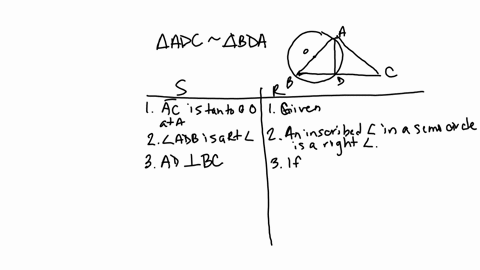 △ADC ~ △BDA
A
O
B
D
C
S
R
1. AC is tan to O O
at A
1. Given
2. ∠ADB is a Rt ∠
2. An inscribed ∠ in a semicircle
is a right ∠.
3. AD ⊥ BC
3. If